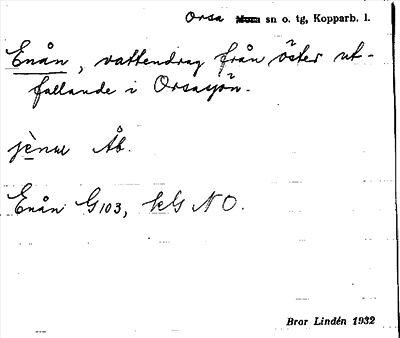 Orsa sn o. tg, Kopparb. l.
Enån, vattendrag från öster ut-
fallande i Orsasjön.
Åb.
Enån G103, kG NO.
Bror Lindén 1932